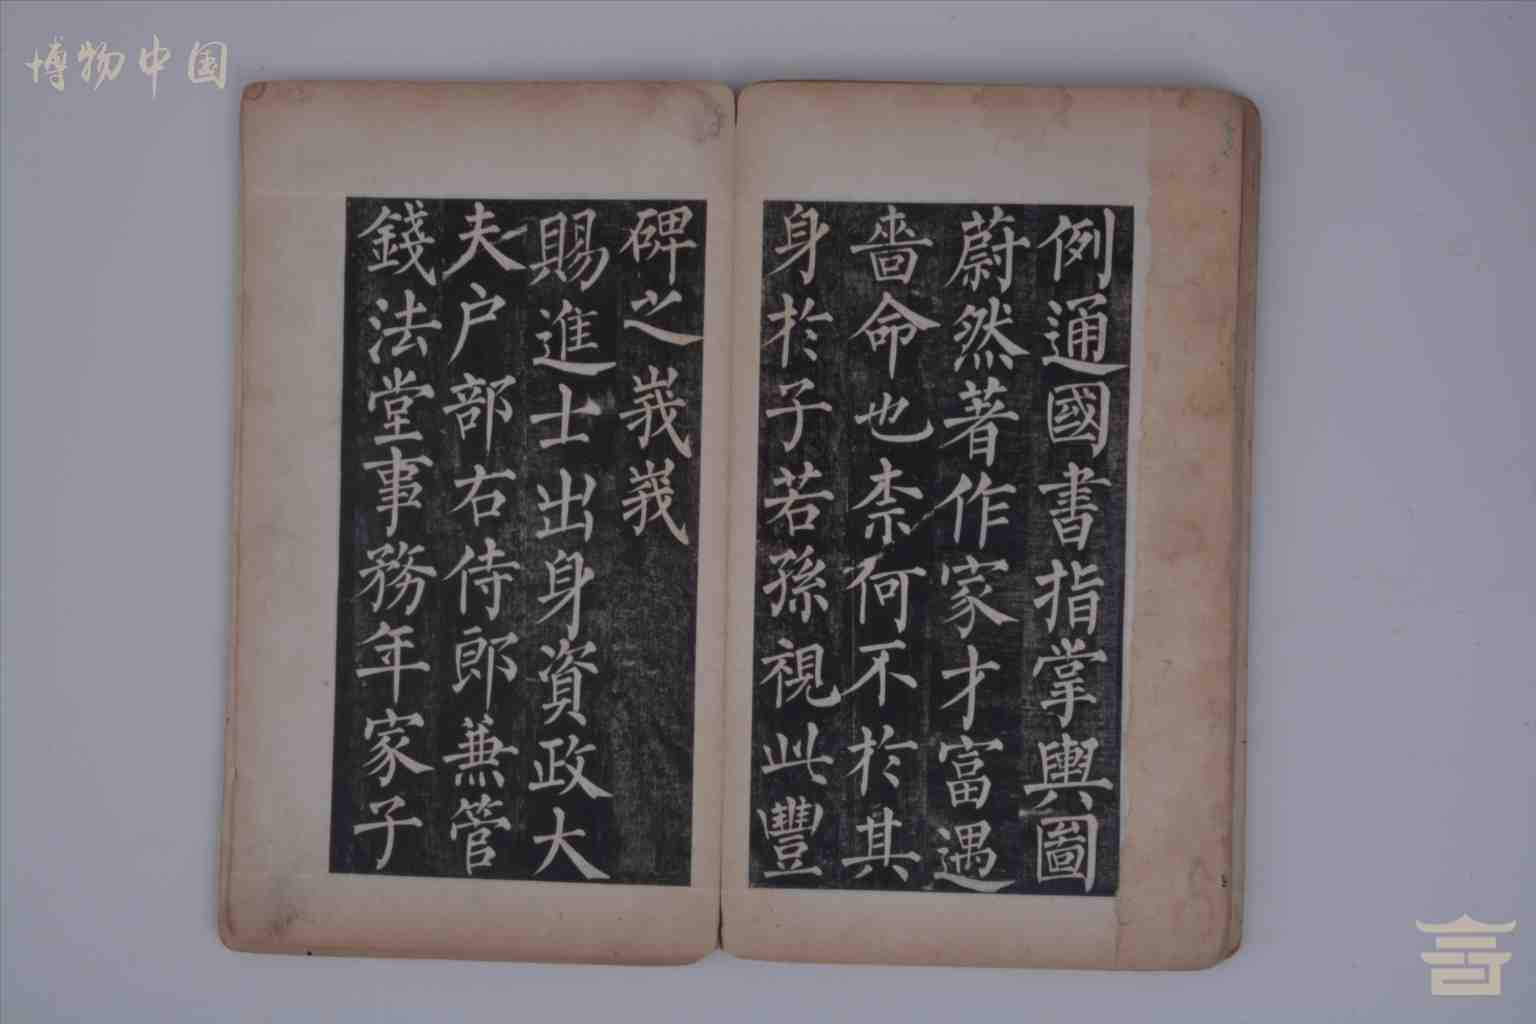 博物中国
例通國書指掌輿圖
蔚然著作家才富遇
嗇命也柰何不於其
身於子若孫視此豐
碑之峩峩
賜進士出身資政大
夫戶部右侍郎蒹管
錢法堂事務年家子